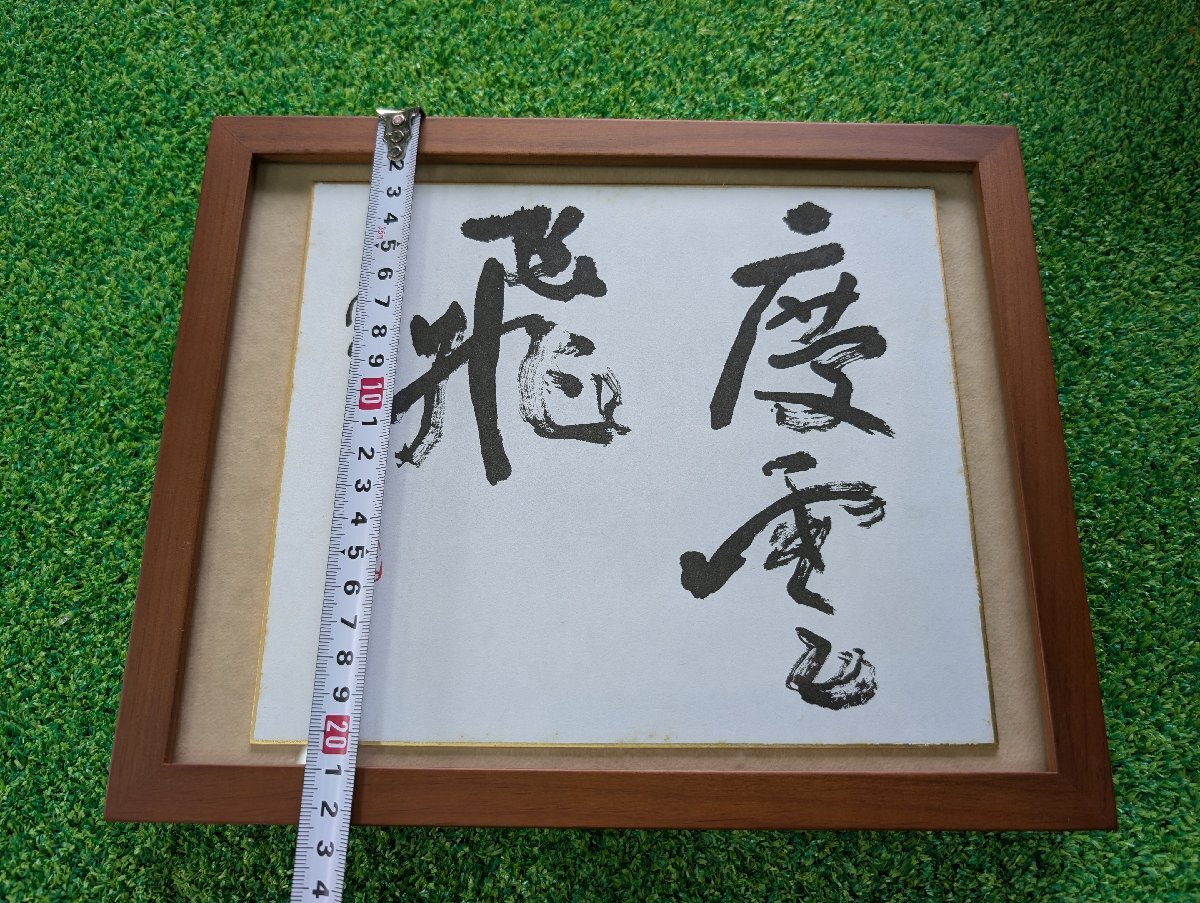 慶雲
飛
2 3 4 5 6 7 8 9 10 1 2 3 4 5 6 7 8 9 20 1 2 3 4